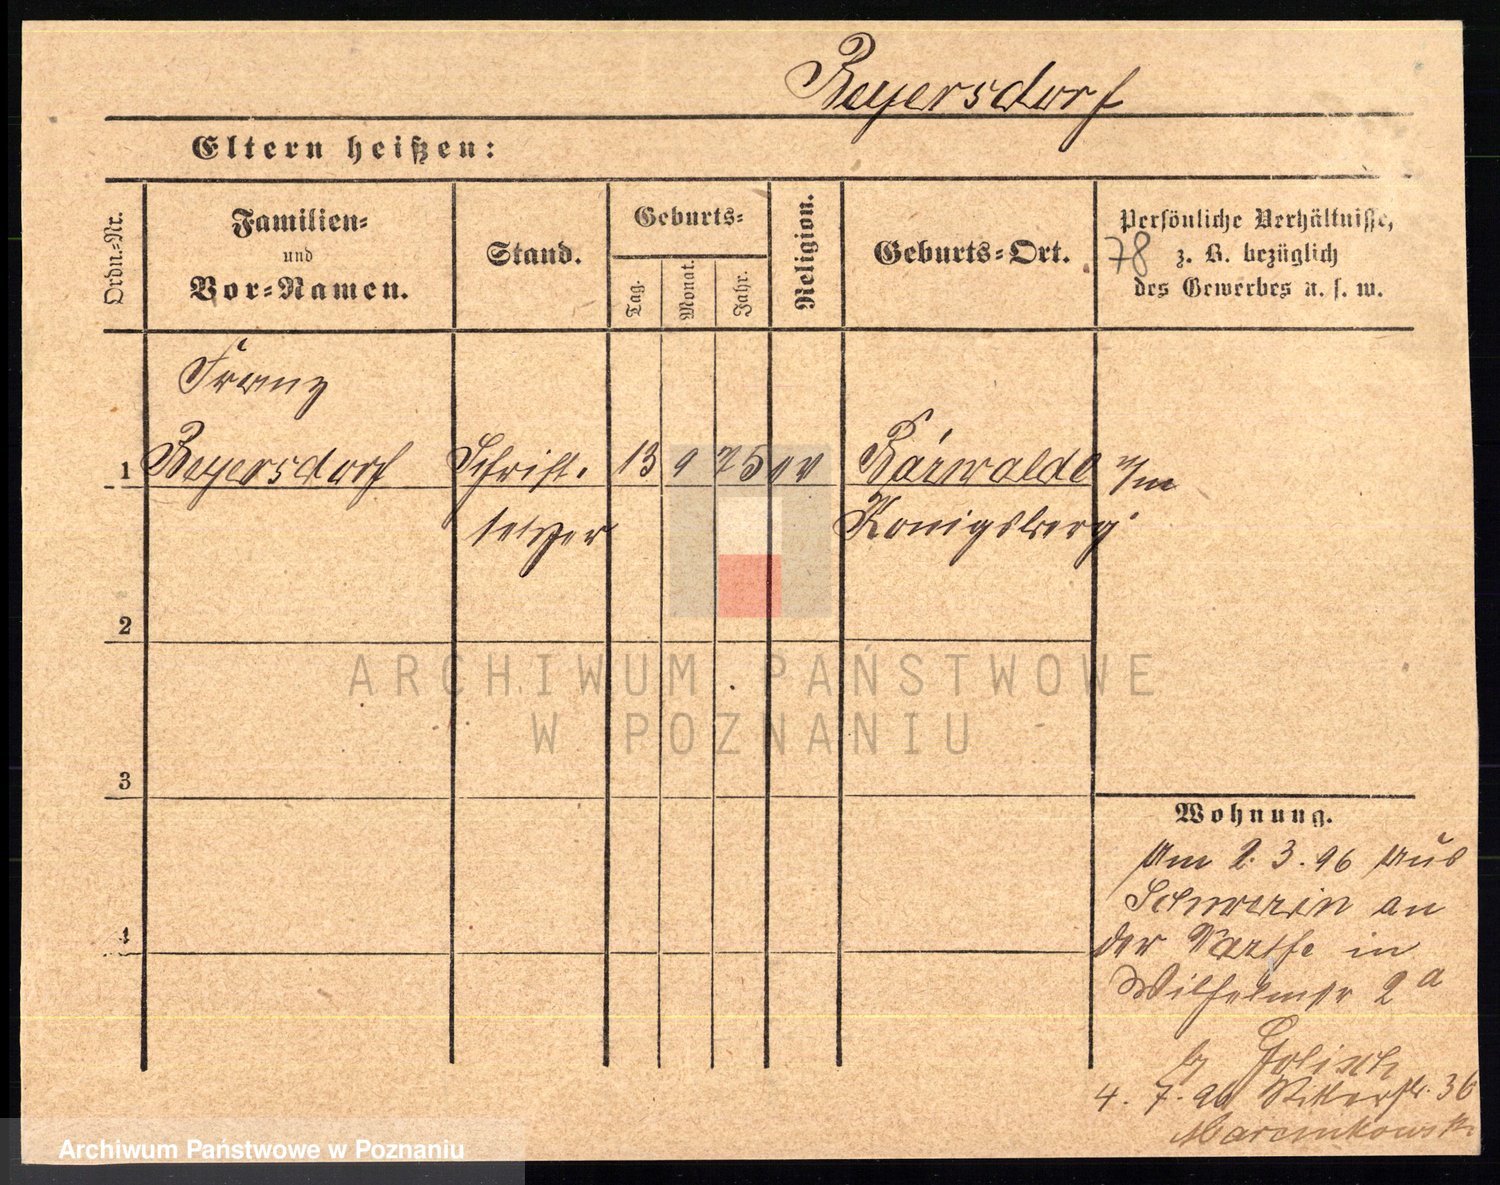 Beyersdorf
Eltern heißen:
Ordn.-Nr.
Familien-
und
Vor-Namen.
Stand.
Geburts-
Tag.
Monat.
Jahr.
Religion.
Geburts-Ort.
Persönliche Verhältnisse,
78 z. B. bezüglich
des Gewerbes u. s. w.
Franz
1 Beyersdorf Schrift- 13 9 75 ev Bärwalde n/m
setzer Königsberg
2
3
4
Wohnung.
Am 2.3.96 aus
Schwerin an
der Warthe in
Wilhelmstr 2a
b Golisch
4. 7. 96 Ritterstr. 36
Marcinkowski
ARCHIWUM PAŃSTWOWE
W POZNANIU
Archiwum Państwowe w Poznaniu